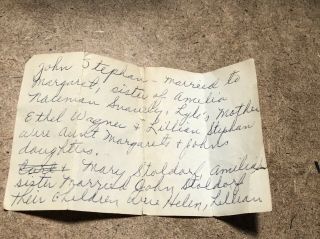 John Stephan - marreid to
Margaret, sister of Amelia
Nateman Snavely, Lyle's Mother
Ethel Wagner & Lillian Stephan
were Aunt Margarets & Johns
daughters.
& Mary Stoldorf, Amilias
sister Married John Stoldorf
Their Children were Helen, Lillian